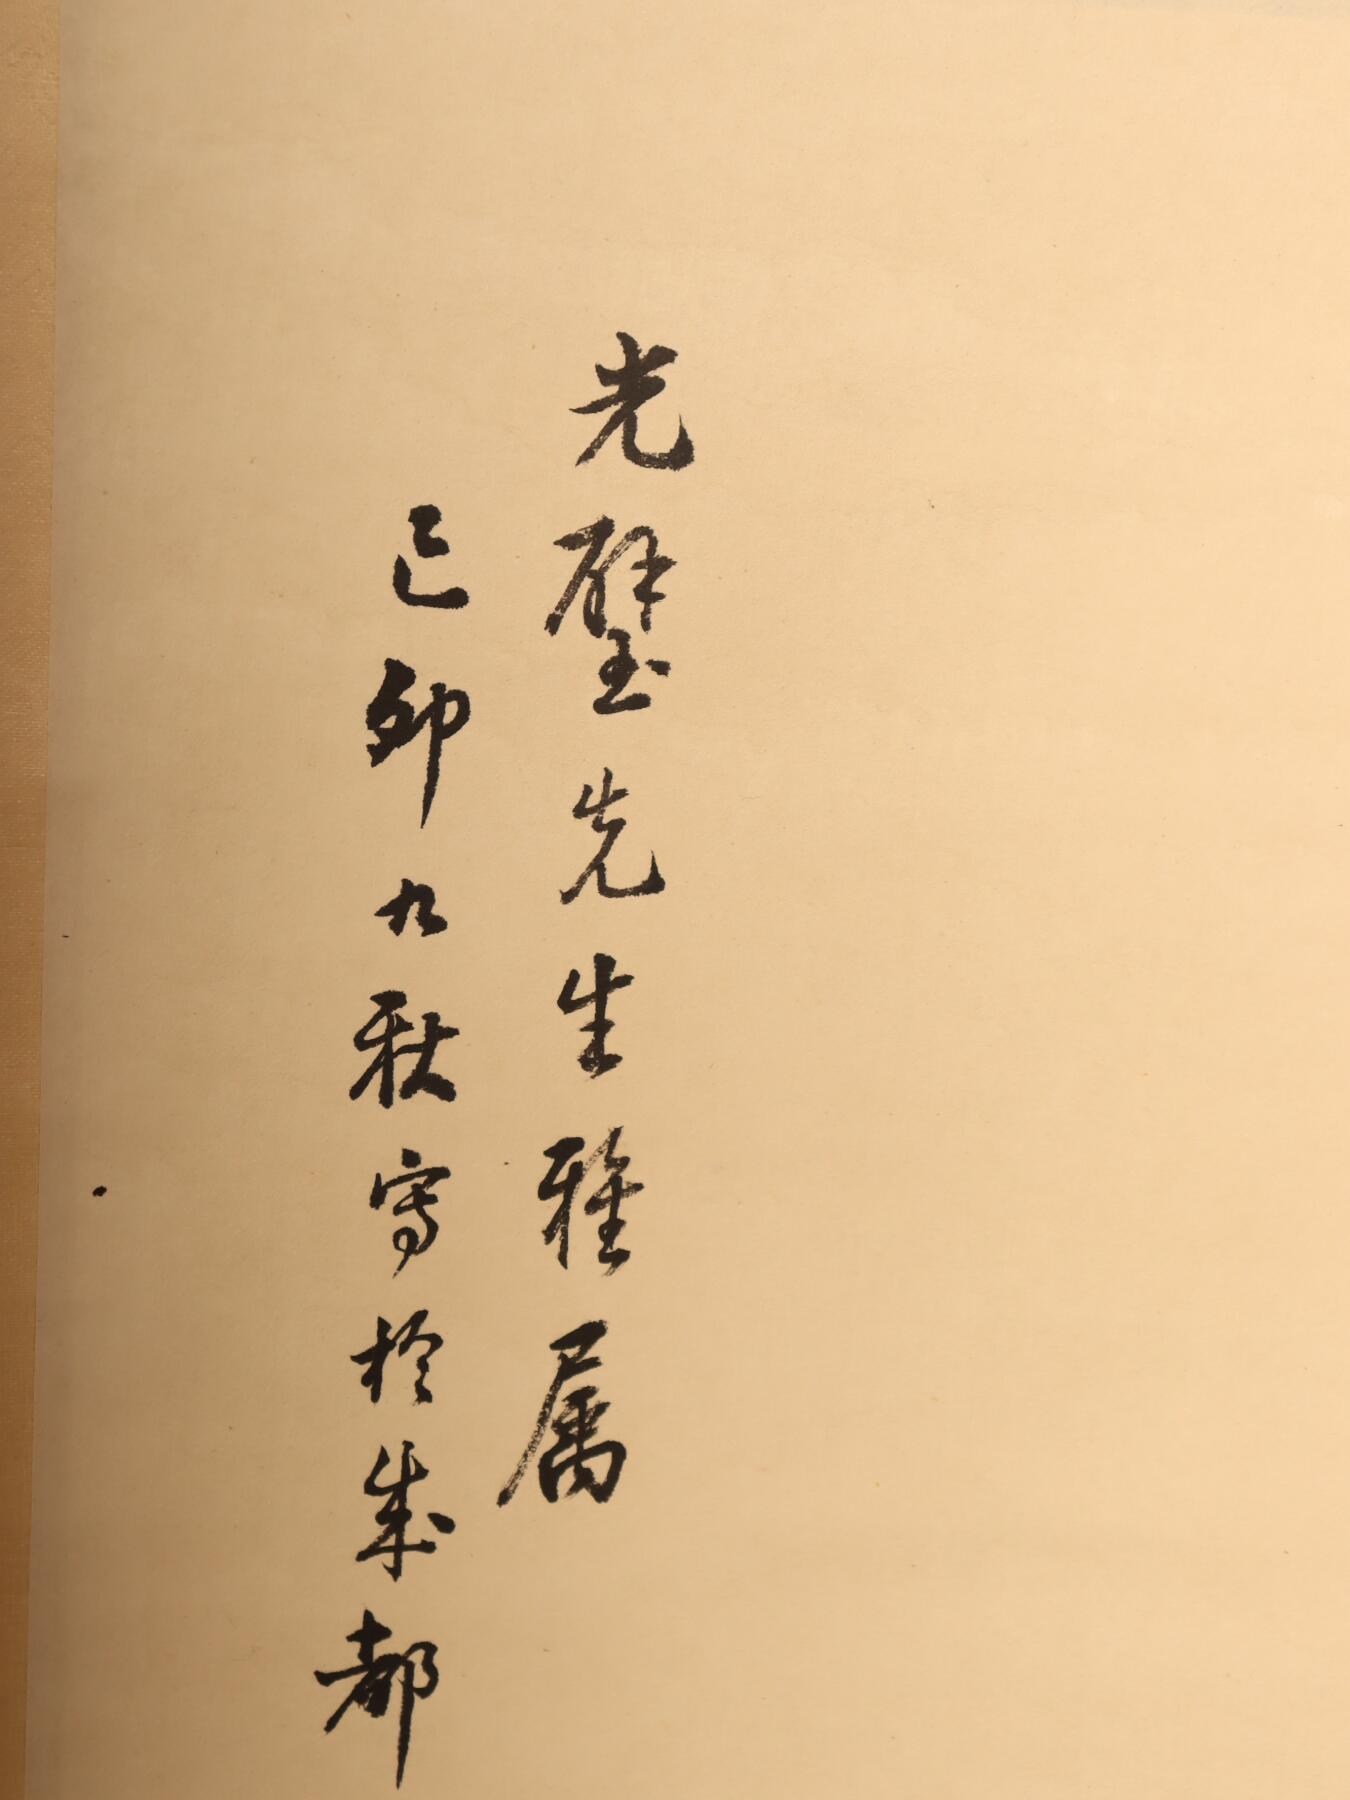 光璧先生雅属
己卯九秋写於成都